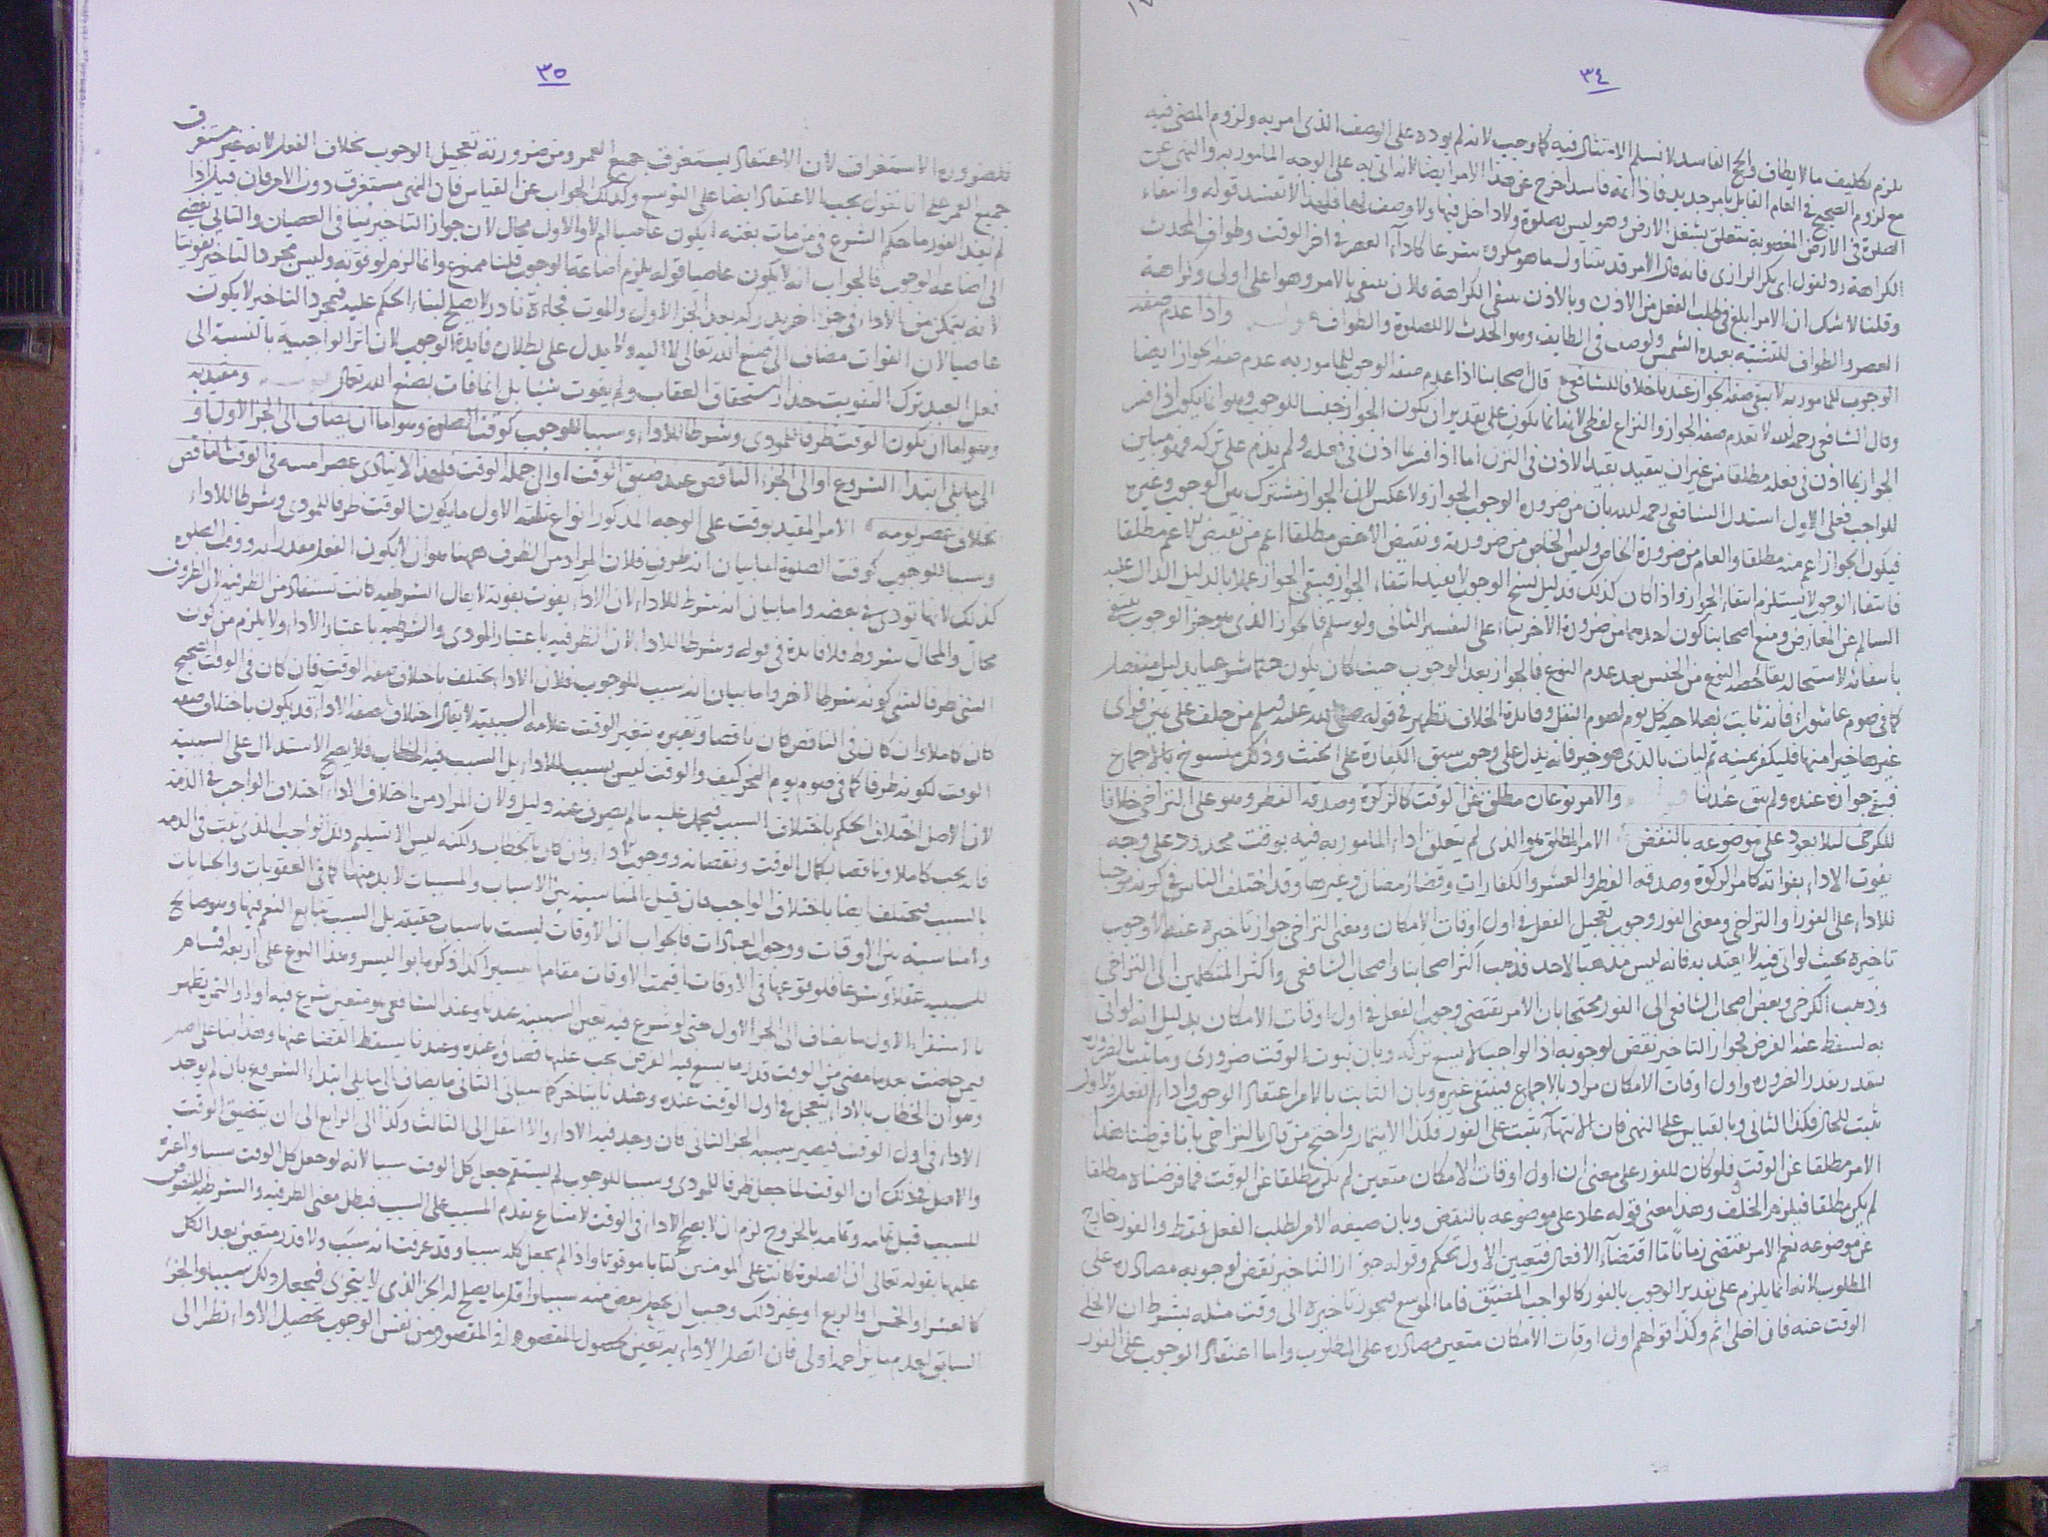 ٣٤
يلزم تكليف ما لا يطاق والحج الفاسد لا نسلم الامتثال فيه كما وجب لانه لم يؤده على الوصف الذى امر به ولزوم المضى فيه
مع لزوم الصحيح فى العام القابل بامر جديد فاذا اتمه فاسدا خرج عن هذا الامر ايضا لانه اتى به على الوجه المامور به والنهى عن
الصلوة فى الارض المغصوبة يتعلق بشغل الارض وهو ليس بصلوة ولا داخل فيها ولا وصف لها فلهذا لا تفسد قوله وانتفاء
الكراهة رد لقول ابى بكر الرازى فانه قال الامر قد يتناول ما هو مكروه شرعا كاداء العصر فى اخر الوقت وطواف المحدث
وقلنا لا شك ان الامر ابلغ فى طلب الفعل من الاذن وبالاذن ينتفى الكراهة فلان ينتفى بالامر وهو اعلى اولى وكراهة
العصر والطواف للتشبه بعبدة الشمس ولوصف فى الطايف وهو الحدث لا للصلوة والطواف واذا عدم صفة
الوجوب للمامور به لا يبقى صفة الجواز عندنا خلافا للشافعى قال اصحابنا اذا عدم صفة الوجوب للمامور به عدم صفة الجواز ايضا
وقال الشافعى رحمه الله لا تعدم صفة الجواز والنزاع لفظى لانه انما يكون على تقدير ان يكون الجواز جنسا للوجوب وهو انما يكون اذا فسر
الجواز بما اذن فى فعله مطلقا من غير ان يتقيد بقيد الاذن فى الترك اما اذا فسر بما اذن فى فعله ولم يذم على تركه فهو مباين
للواجب فعلى الاول استدل الشافعى رحمه الله بان من ضرورة الوجوب الجواز ولا عكس لان الجواز مشترك بين الوجوب وغيره
فيكون الجواز اعم منه مطلقا والعام من ضرورة الخاص وليس الخاص من ضرورته ونقيض الاخص مطلقا اعم من نقيض الاعم مطلقا
فانتفاء الوجوب لا يستلزم انتفاء الجواز واذا كان كذلك فدليل نسخ الوجوب لا يفيد انتفاء الجواز فيبقى الجواز عملا بالدليل الدال عليه
السالم عن المعارض ومنع اصحابنا كون احدهما من ضرورة الاخر بناء على التفسير الثانى ولو سلم فالجواز الذى هو جزء الوجوب ينتفى
بانتفائه لاستحالة بقاء حصة النوع من الجنس بعد عدم النوع فالجواز بعد الوجوب حيث كان يكون حكما شرعيا بدليل منفصل
كما فى صوم عاشوراء فانه ثابت بصلاحية كل يوم لصوم النفل وفائدة الخلاف تظهر فى قوله صلى الله عليه وسلم من حلف على يمين فراى
غيرها خيرا منها فليكفر يمينه ثم ليات بالذى هو خير فانه يدل على وجوب سبق الكفارة على الحنث وذلك منسوخ بالاجماع
فبقى جوازه عنده ولم يبق عندنا والامر نوعان مطلق عن الوقت كالزكوة وصدقة الفطر وهو على التراخى خلافا
للكرخى لئلا يعود على موضوعه بالنقض الامر المطلق هو الذى لم يتعلق اداء المامور به فيه بوقت محدود على وجه
يفوت الاداء بفواته كامر الزكوة وصدقة الفطر والعشر والكفارات وقضاء رمضان وغيرها وقد اختلف الناس فى كونه موجبا
للاداء على الفور او التراخى ومعنى الفور وجوب تعجيل الفعل فى اول اوقات الامكان ومعنى التراخى جواز تاخيره عنه لا وجوب
تاخيره بحيث لو اتى فيه لا يعتد به فانه ليس مذهبا لاحد فذهب اكثر اصحابنا واصحاب الشافعى واكثر المتكلمين الى التراخى
وذهب الكرخى وبعض اصحاب الشافعى الى الفور محتجا بان الامر يقتضى وجوب الفعل فى اول اوقات الامكان بدليل انه لو اتى
به لسقط عنه الفرض فجواز التاخير نقض لوجوبه اذ الواجب لا يسع تركه وبان ثبوت الوقت ضرورى وما ثبت بالضرورة
يتقدر بقدر الضرورة واول اوقات الامكان مراد بالاجماع فينتفى غيره وبان الثابت بالامر اعتقاد الوجوب واداء الفعل والاول
يثبت للحال فكذا الثانى وبالقياس على النهى فان الانتهاء يثبت على الفور فكذا الايتمار واحتج من قال بالتراخى بانا فرضنا هذا
الامر مطلقا عن الوقت فلو كان للفور على معنى ان اول اوقات الامكان متعين لم يكن مطلقا عن الوقت فما فرضناه مطلقا
لم يكن مطلقا فيلزم الخلف وهذا معنى قوله عاد على موضوعه بالنقض وبان صيغة الامر لطلب الفعل فقط والفور خارج
عن موضوعه نعم الامر يقتضى زمانا ما اقتضاء الافعال فتعيين الاول تحكم وقوله جواز التاخير نقض لوجوبه مصادرة على
المطلوب لانه انما يلزم على تقدير الوجوب بالفور كالواجب المضيق فاما الموسع فيجوز تاخيره الى وقت مثله بشرط ان لا يخلى
الوقت عنه فان اخلى اثم وكذا قولهم اول اوقات الامكان متعين مصادرة على المطلوب واما اعتقاد الوجوب على الفور
٣٥
فلضرورة الاستغراق لان الاعتقاد يستغرق جميع العمر ومن ضرورته تعجيل الوجوب بخلاف الفعل لانه غير مستغرق
جميع العمر على انا نقول يجب الاعتقاد ايضا على التوسع وكذلك الجواب عن القياس فان النهى مستغرق دون الامر فان قيل اذا
لم يفد الفور ما حكم الشرع فى من مات بغتة ايكون عاصيا ام لا والاول محال لان جواز التاخير ينافى العصيان والثانى يفضى
الى اضاعة الوجوب فالجواب انه لا يكون عاصيا قوله يلزم اضاعة الوجوب قلنا ممنوع وانما لزم لو فوته وليس مجرد التاخير تفويتا
لانه يتمكن من الاداء فى جزء اخر يدركه بعد الجزء الاول والموت فجاءة نادر لا يصلح لبناء الحكم عليه فبمجرد التاخير لا يكون
عاصيا لان الفوات مضاف الى صنع الله تعالى لا اليه ولا يدل على بطلان فايدة الوجوب لان اثر الواجبية بالنسبة الى
فعل العبد ترك التفويت حذار استحقاق العقاب ولم يفوت شيئا بل انما فات بصنع الله تعالى ومقيد به
وهو اما ان يكون الوقت ظرفا للمودى وشرطا للاداء وسببا للوجوب كوقت الصلوة وهو اما ان يضاف الى الجزء الاول او
الى ما يلى ابتداء الشروع او الى الجزء الناقص عند ضيق الوقت او الى جملة الوقت فلهذا لا يتادى عصر امسه فى الوقت الناقص
بخلاف عصر يومه الامر المقيد بوقت على الوجه المذكور انواع ثلثة الاول ما يكون الوقت ظرفا للمودى وشرطا للاداء
وسببا للوجوب كوقت الصلوة اما بيان انه ظرف فلان المراد من الظرف ههنا هو ان لا يكون الفعل مقدرا به ووقت الصلوة
كذلك لانها تودى فى بعضه واما بيان انه شرط للاداء لان الاداء يفوت بفوته لا يقال الشرطية كانت تستفاد من الظرفية لان الظروف
محال والمحال شروط فلا فايدة فى قوله وشرطا للاداء لان الظرفية باعتبار المودى والشرطية باعتبار الاداء ولا يلزم من كون
الشئ ظرفا لشئ كونه شرطا لاخر واما بيان انه سبب للوجوب فلان الاداء يختلف باختلاف صفة الوقت فان كان فى الوقت الصحيح
كان كاملا وان كان فى الناقص كان ناقصا وتغيره بتغير الوقت علامة السببية لا يقال اختلاف صفة الاداء قد يكون باختلاف صفة
الوقت لكونه ظرفا كما فى صوم يوم النحر كيف والوقت ليس بسبب للاداء بل السبب فيه الخطاب فلا يصح الاستدلال على السببية
لان الاصل اختلاف الحكم باختلاف السبب فيحمل عليه ما لم يصرف عنه دليل ولان المراد من اختلاف الاداء اختلاف الواجب فى الذمة
فانه يجب كاملا وناقصا بكمال الوقت ونقصانه ووجوب الاداء وان كان بالخطاب ولكنه ليس الا تسليم ذلك الواجب الذى ثبت فى الذمة
بالسبب فيختلف ايضا باختلاف الواجب فان قيل المناسبة بين الاسباب والمسببات لا بد منها كما فى العقوبات والجنايات
ولا مناسبة بين الاوقات ووجوب العبادات فالجواب ان الاوقات ليست باسباب حقيقة بل السبب تتابع النعم فيها وهو صالح
للسببية عقلا وشرعا فلوقوعها فى الاوقات اقيمت الاوقات مقامها تيسيرا كذا ذكره ابو اليسر وهذا النوع على اربعة اقسام
بالاستقراء الاول ما يضاف الى الجزء الاول حتى لو شرع فيه تعين السببية عندنا وعند الشافعى هو متعين شرع فيه اولا والثمرة تظهر
فيمن حاضت بعد ما مضى من الوقت قدر ما يسع فيه الفرض يجب عليها قضاؤه عنده وعندنا يسقط القضا عنها وهذا بناء على اصر
وهو ان الخطاب بالاداء يتعجل فى اول الوقت عنده وعندنا يتاخر كما سياتى الثانى ما يضاف الى ما يلى ابتداء الشروع بان لم يوجد
الاداء فى اول الوقت فيصير سببه الجزء الثانى فان وجد فيه الاداء والا انتقل الى الثالث وكذا الى الرابع الى ان يتضيق الوقت
والاصل فى ذلك ان الوقت لما جعل ظرفا للمودى وسببا للوجوب لم يستقم جعل كل الوقت سببا لانه لو جعل كل الوقت سببا
للسبب قبل تمامه وتمامه بالخروج لزم ان لا يصح الاداء فى الوقت لامتناع تقدم المسبب على السبب فبطل معنى الظرفية والشرطية المنصوص
عليها بقوله تعالى ان الصلوة كانت على المومنين كتابا موقوتا واذا لم يجعل كله سببا وقد عرفت انه سبب ولا قدر متعين بعد الكل
كالعشر والخمس والربع او غير ذلك وجب ان يجعل بعض منه سببا واقل ما يصلح له الجزء الذى لا يتجزى فيجعل ذلك سببا والجزء
السابق لعدم ما يزاحمه اولى فان اتصل الاداء به تعين لحصول المقصود اذ المقصود من نفس الوجوب تحصيل الاداء نظرا الى